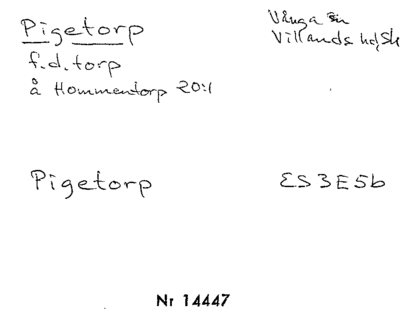 Pigetorp
Vånga sn
Villands hd, Sk
f.d. torp
å Hommentorp 20:1
Pigetorp
ES 3E5b
Nr 14447